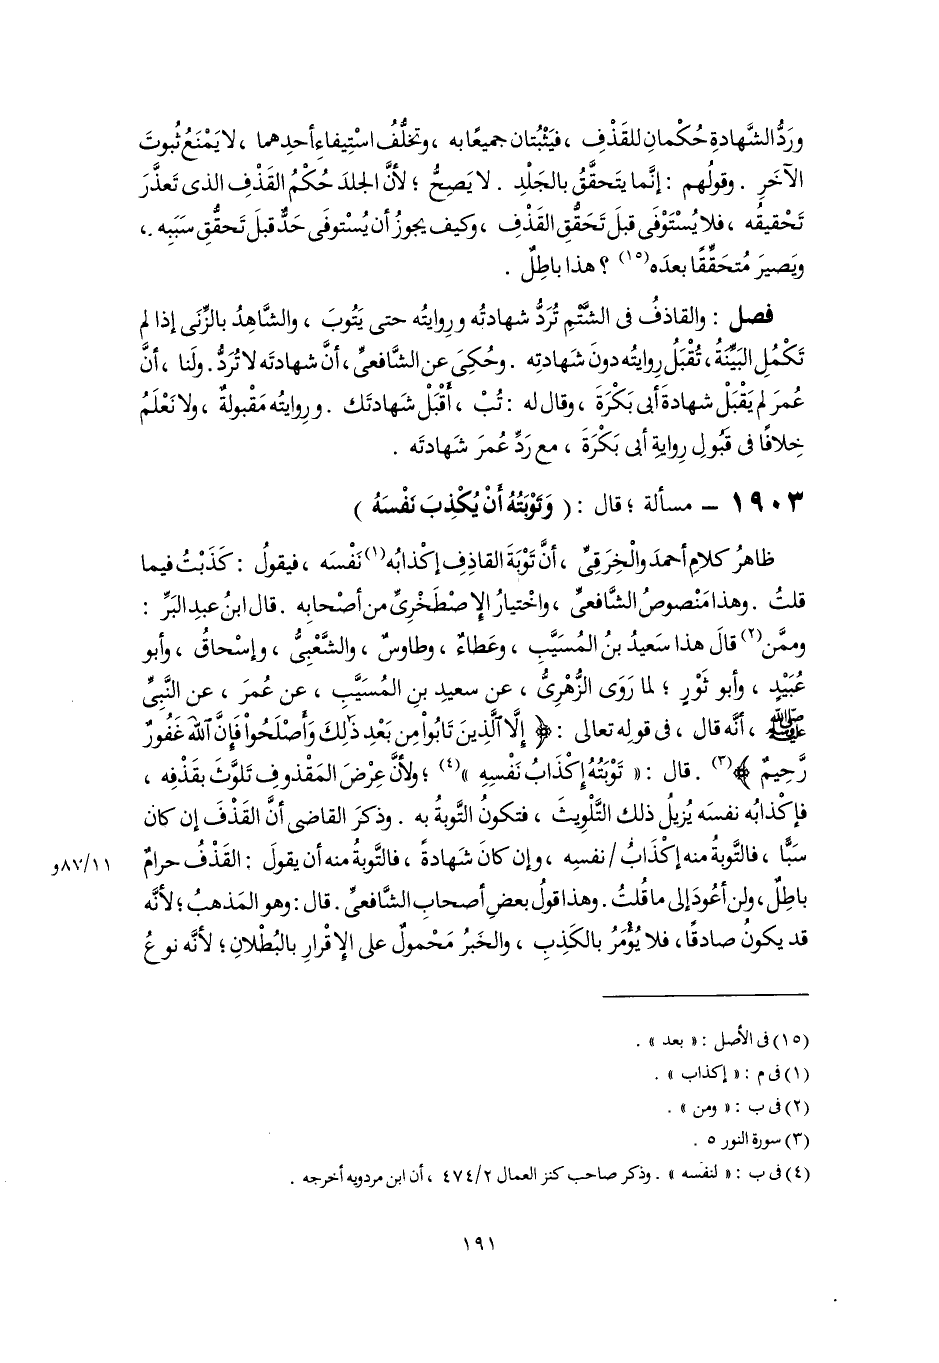 ورَدُّ الشَّهادةِ حُكْمان للقَذْفِ ، فيَثْبُتان جميعًا به ، وتخلُّفُ اسْتِيفاءِ أحدِهما ، لا يَمْنَعُ ثُبوتَ
الآخَرِ . وقولُهم : إنَّما يتَحقَّقُ بالجَلْدِ . لا يَصِحُّ ؛ لأنَّ الجلدَ حُكْمُ القَذْفِ الذى تَعذَّرَ
تَحْقيقُه ، فلا يُسْتَوْفَى قبلَ تَحَقُّقِ القَذْفِ ، وكيف يجوزُ أن يُسْتوفَى حَدٌّ قبلَ تَحقُّقِ سَبَبِه ،
ويَصيرَ مُتحَقِّقًا بعدَه(١٥) ؟ هذا باطِلٌ .
فصل : والقاذفُ فى الشَّتْمِ تُرَدُّ شهادتُه وروايتُه حتى يَتُوبَ ، والشَّاهِدُ بالزِّنَى إذا لم
تَكْمُلِ البَيِّنةُ ، تُقْبَلُ روايتُه دونَ شَهادتِه . وحُكِىَ عن الشَّافعىِّ ، أنَّ شهادتَه لا تُرَدُّ . ولَنا ، أنَّ
عُمرَ لم يَقْبَلْ شهادةَ أبى بَكْرَةَ ، وقال له : تُبْ ، أَقْبَلْ شهادتَك . وروايتُه مَقْبولةٌ ، ولا نَعْلَمُ
خِلافًا فى قَبُولِ رِوايةِ أبى بَكْرَةَ ، مع رَدِّ عُمرَ شَهادتَه .
١٩٠٣ – مسألة ؛ قال : ( وَتَوْبَتُهُ أَنْ يُكْذِبَ نَفْسَهُ )
ظاهرُ كلامِ أحمدَ والْخِرَقِىِّ ، أنَّ تَوْبَةَ القاذِفِ إكْذابُه(١) نَفْسَه ، فيقولُ : كَذَبْتُ فيما
قلتُ . وهذا مَنْصوصُ الشَّافعىِّ ، واخْتيارُ الإِصْطَخْرِىِّ من أصْحابِه . قال ابنُ عبدِ البَرِّ :
وممَّن(٢) قالَ هذا سَعيدُ بنُ المُسَيَّبِ ، وعَطاءٌ ، وطاوسٌ ، والشَّعْبِىُّ ، وإسْحاقُ ، وأبو
عُبَيْدٍ ، وأبو ثَوْرٍ ؛ لما رَوَى الزُّهْرِىُّ ، عن سعيدِ بنِ المُسَيَّبِ ، عن عمرَ ، عن النَّبِىِّ
ﷺ ، أنَّه قال ، فى قولِه تعالى : ﴿ إِلَّا ٱلَّذِينَ تَابُوا۟ مِن بَعْدِ ذَٰلِكَ وَأَصْلَحُوا۟ فَإِنَّ ٱللَّهَ غَفُورٌ
رَّحِيمٌ ﴾(٣) . قال : « تَوْبَتُهُ إكْذَابُ نَفْسِهِ »(٤) ؛ ولأنَّ عِرْضَ المَقْذوفِ تَلوَّثَ بقَذْفِه ،
فإكْذابُه نفسَه يُزيلُ ذلك التَّلْويثَ ، فتكونُ التَّوبةُ به . وذكرَ القاضى أنَّ القَذْفَ إن كان
سَبًّا ، فالتَّوبةُ منه إكْذَابُ / نفسِه ، وإن كانَ شَهادةً ، فالتَّوبةُ منه أن يقولَ : القَذْفُ حرامٌ ١١/٨٧و
باطِلٌ ، ولن أعُودَ إلى ما قُلتُ . وهذا قولُ بعضِ أصحابِ الشَّافعىِّ . قال : وهو المَذهبُ ؛ لأنَّه
قد يكونُ صادقًا ، فلا يُؤْمَرُ بالكَذِبِ ، والخَبَرُ مَحْمولٌ على الإِقْرارِ بالبُطْلانِ ؛ لأنَّه نوعُ
(١٥) فى الأصل : « بعد » .
(١) فى م : « إكذاب » .
(٢) فى ب : « ومن » .
(٣) سورة النور ٥ .
(٤) فى ب : « لنفسه » . وذكر صاحب كنز العمال ٤٧٤/٢ ، أن ابن مردويه أخرجه .
١٩١